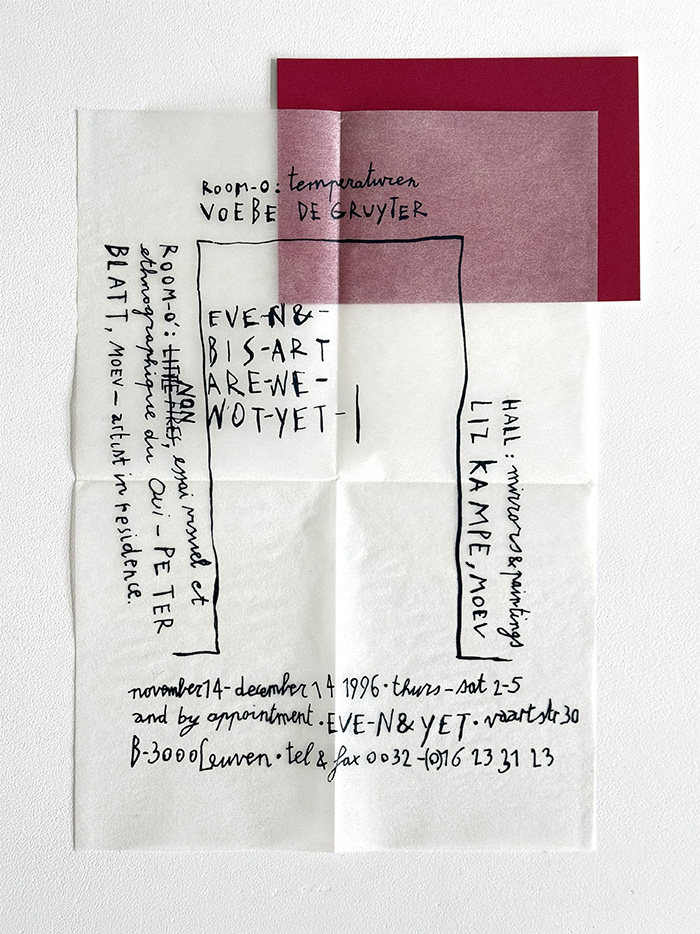 ROOM-O: temperaturen
VOEBE DE GRUYTER
EVE-N&-
BIS-ART
ARE-WE-
NOT-YET-
ROOM-O': LITTERAIRES, NON essai visuel et
ethnographique du Oui - PETER
BLATT, MOEV - artist in residence.
HALL: mirrors & paintings
LIZ KAMPE, MOEV
november 14 - december 14 1996 · thurs - sat 2-5
and by appointment · EVE-N& YET · vaartstr 30
B-3000 Leuven · tel & fax 0032-(0)16 23 31 23